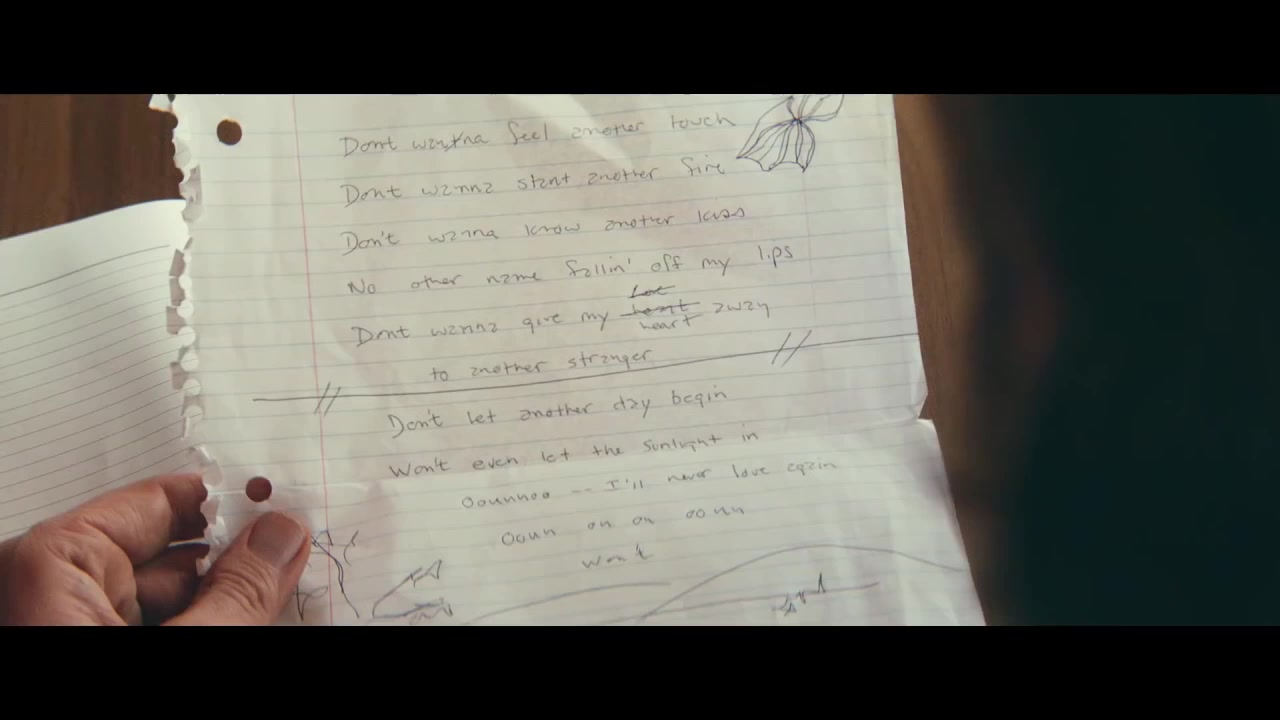 Dont wanna feel another touch
Dont wanna start another fire
Don't wanna know another kiss
No other name fallin' off my lips
Dont wanna give my heart away
to another stranger
Don't let another day begin
Won't even let the sunlight in
Oounnoo -- I'll never love again
Ooun on on oo unn
won't